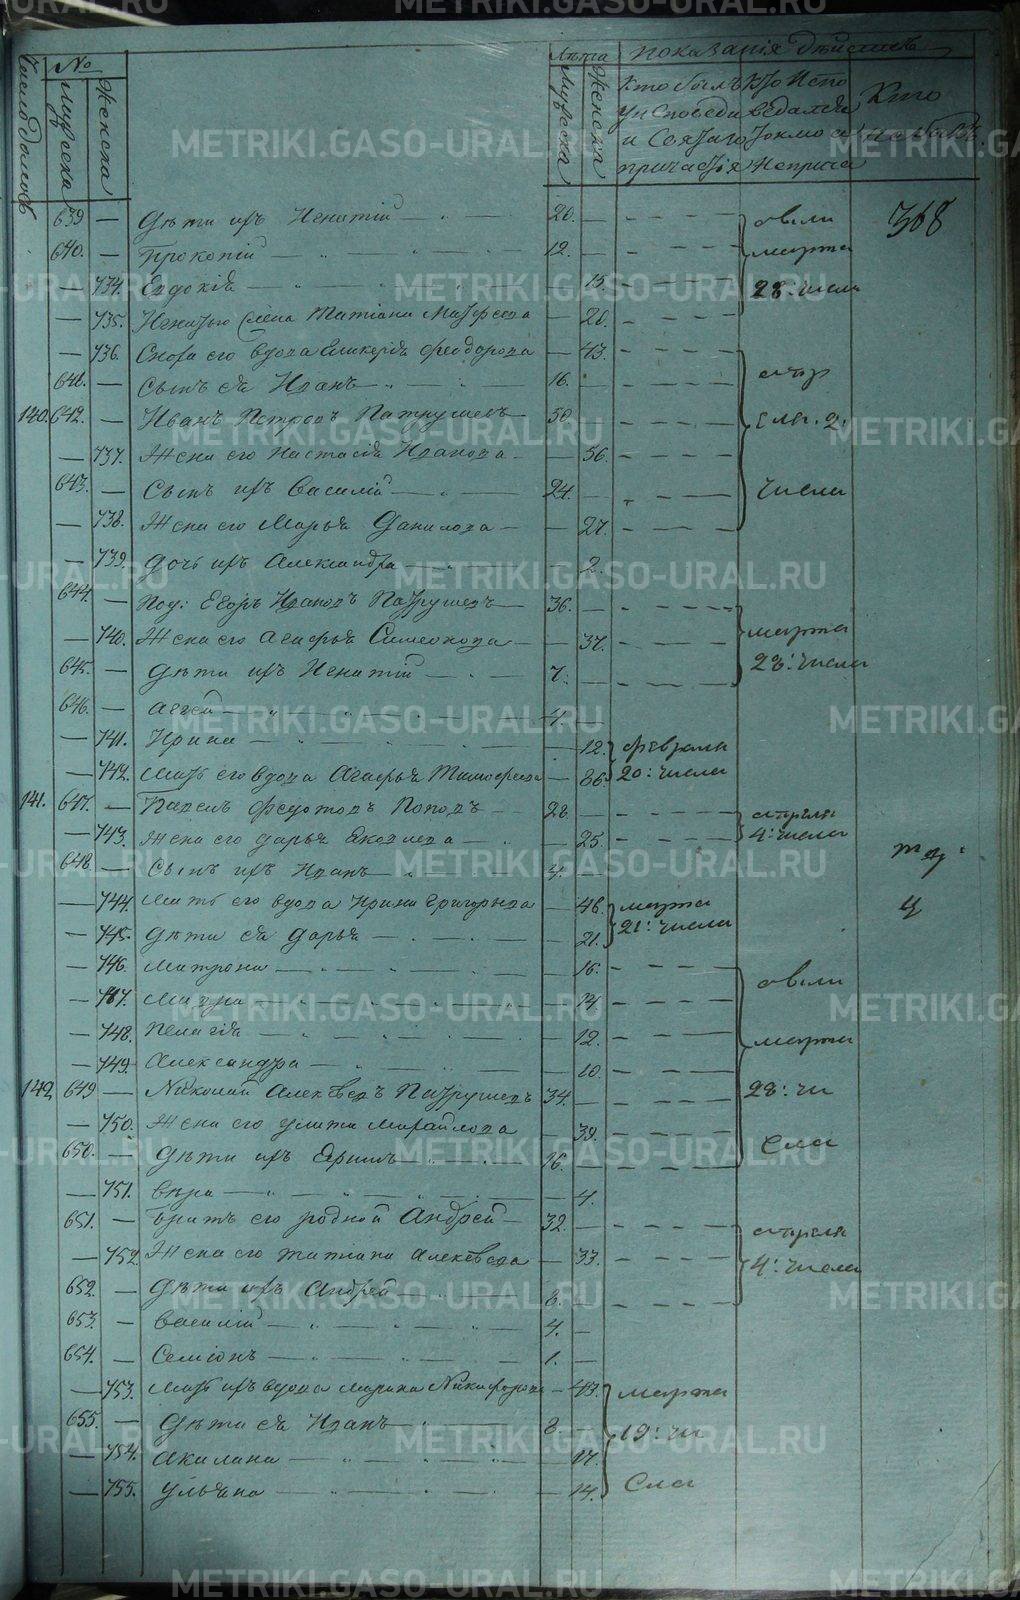 Число домовъ
№
Мужеска
Женска
Лѣта
Мужеска
Женска
показанія дѣйствъ
Кто былъ у исповеди и Святаго причастія
Кто испо ведался токмо а не прича
Кто не былъ
368
639 — Дѣти ихъ Игнатій — 20. —
640. — Прокопій — 12. —
— 734. Евдокія — 15.
— 735. Татіана — 20.
— 736. Сноха его вдова Гликерія Феодорова — 43.
641. — Сынъ ея Иванъ — 16. —
140. 642. — Иванъ Петровъ Патрушевъ 50 —
— 737. Жена его Настасія Иванова — 56.
643. — Сынъ ихъ Василій — 24. —
— 738. Жена его Марья Данилова — 27.
— 739. Дочь ихъ Александра — 2.
644. — Под: Егоръ Ивановъ Патрушевъ — 36. —
— 740. Жена его Агафья Симеонова — 37.
645. — Дѣти ихъ Игнатій — 7. —
646. — Аггей — 4. —
— 741. Ирина — 12.
— 742. Мать его вдова Агафья Тимофеева — 86.
141. 647. — Павелъ Федотовъ Поповъ — 28. —
— 743. Жена его Дарья Яковлева — 25.
648. — Сынъ ихъ Иванъ — 4. —
— 744. Мать его вдова Ирина Григорьева — 46.
— 745. Дѣти ея Дарья — 21.
— 746. Матрона — 16.
— 747. Мавра — 14
— 748. Пелагія — 12.
— 749. Александра — 10.
142. 649 — Николай Алексѣевъ Патрушевъ 34. —
— 750. Жена его Улита Михайлова 39.
650. — Дѣти ихъ Ефимъ — 16. —
— 751. Вѣра — 4.
651. — Братъ его родной Андрей — 32. —
— 752. Жена его Татіана Алексѣева — 33.
652. — Дѣти ихъ Андрей — 8. —
653. — Василій — 4. —
654. — Семіонъ — 1. —
— 753. Мать ихъ вдова Марина Никифорова — 43.
655. — Дѣти ея Иванъ — 8. —
— 754. Акилина — 17.
— 755. Ульяна — 14.
марта
28: числа
апр
еля. 2.
числа
марта
28: числа
февраля
20: числа
апреля
4: числа
марта
21: числа
марта
28: чи
сла
апреля
4: числа
марта
19: чи
сла
METRIKI.GASO-URAL.RU